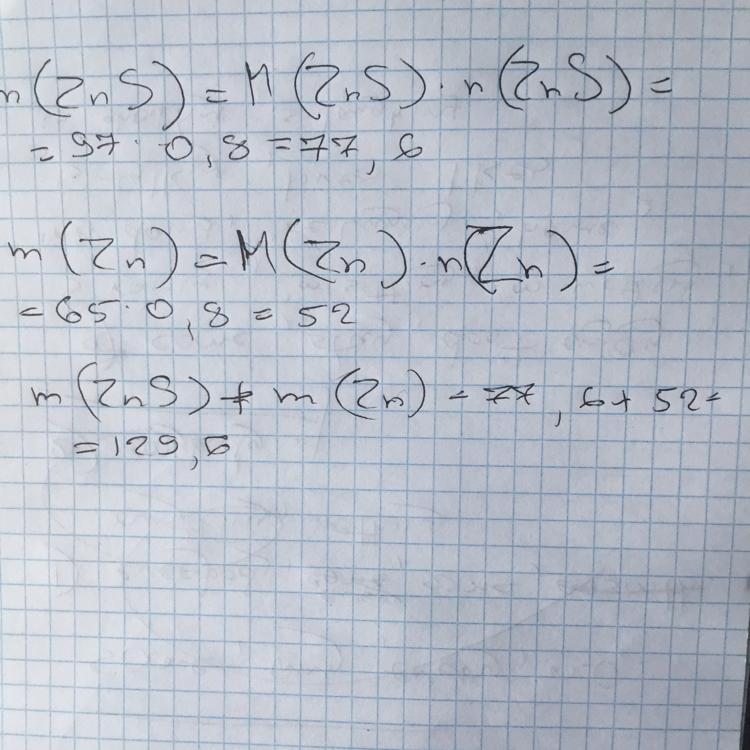 m(ZnS) = M(ZnS) · n(ZnS) =
= 97 · 0,8 = 77,6
m(Zn) = M(Zn) · n(Zn) =
= 65 · 0,8 = 52
m(ZnS) + m(Zn) = 77,6 + 52 =
= 129,6